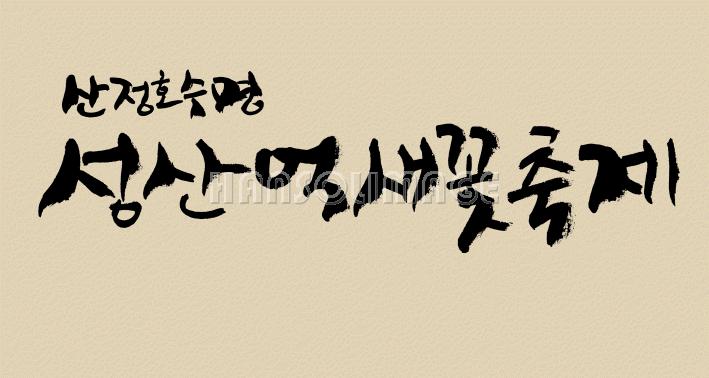 산정호수명
성산억새꽃축제
HANSOLIMAGE